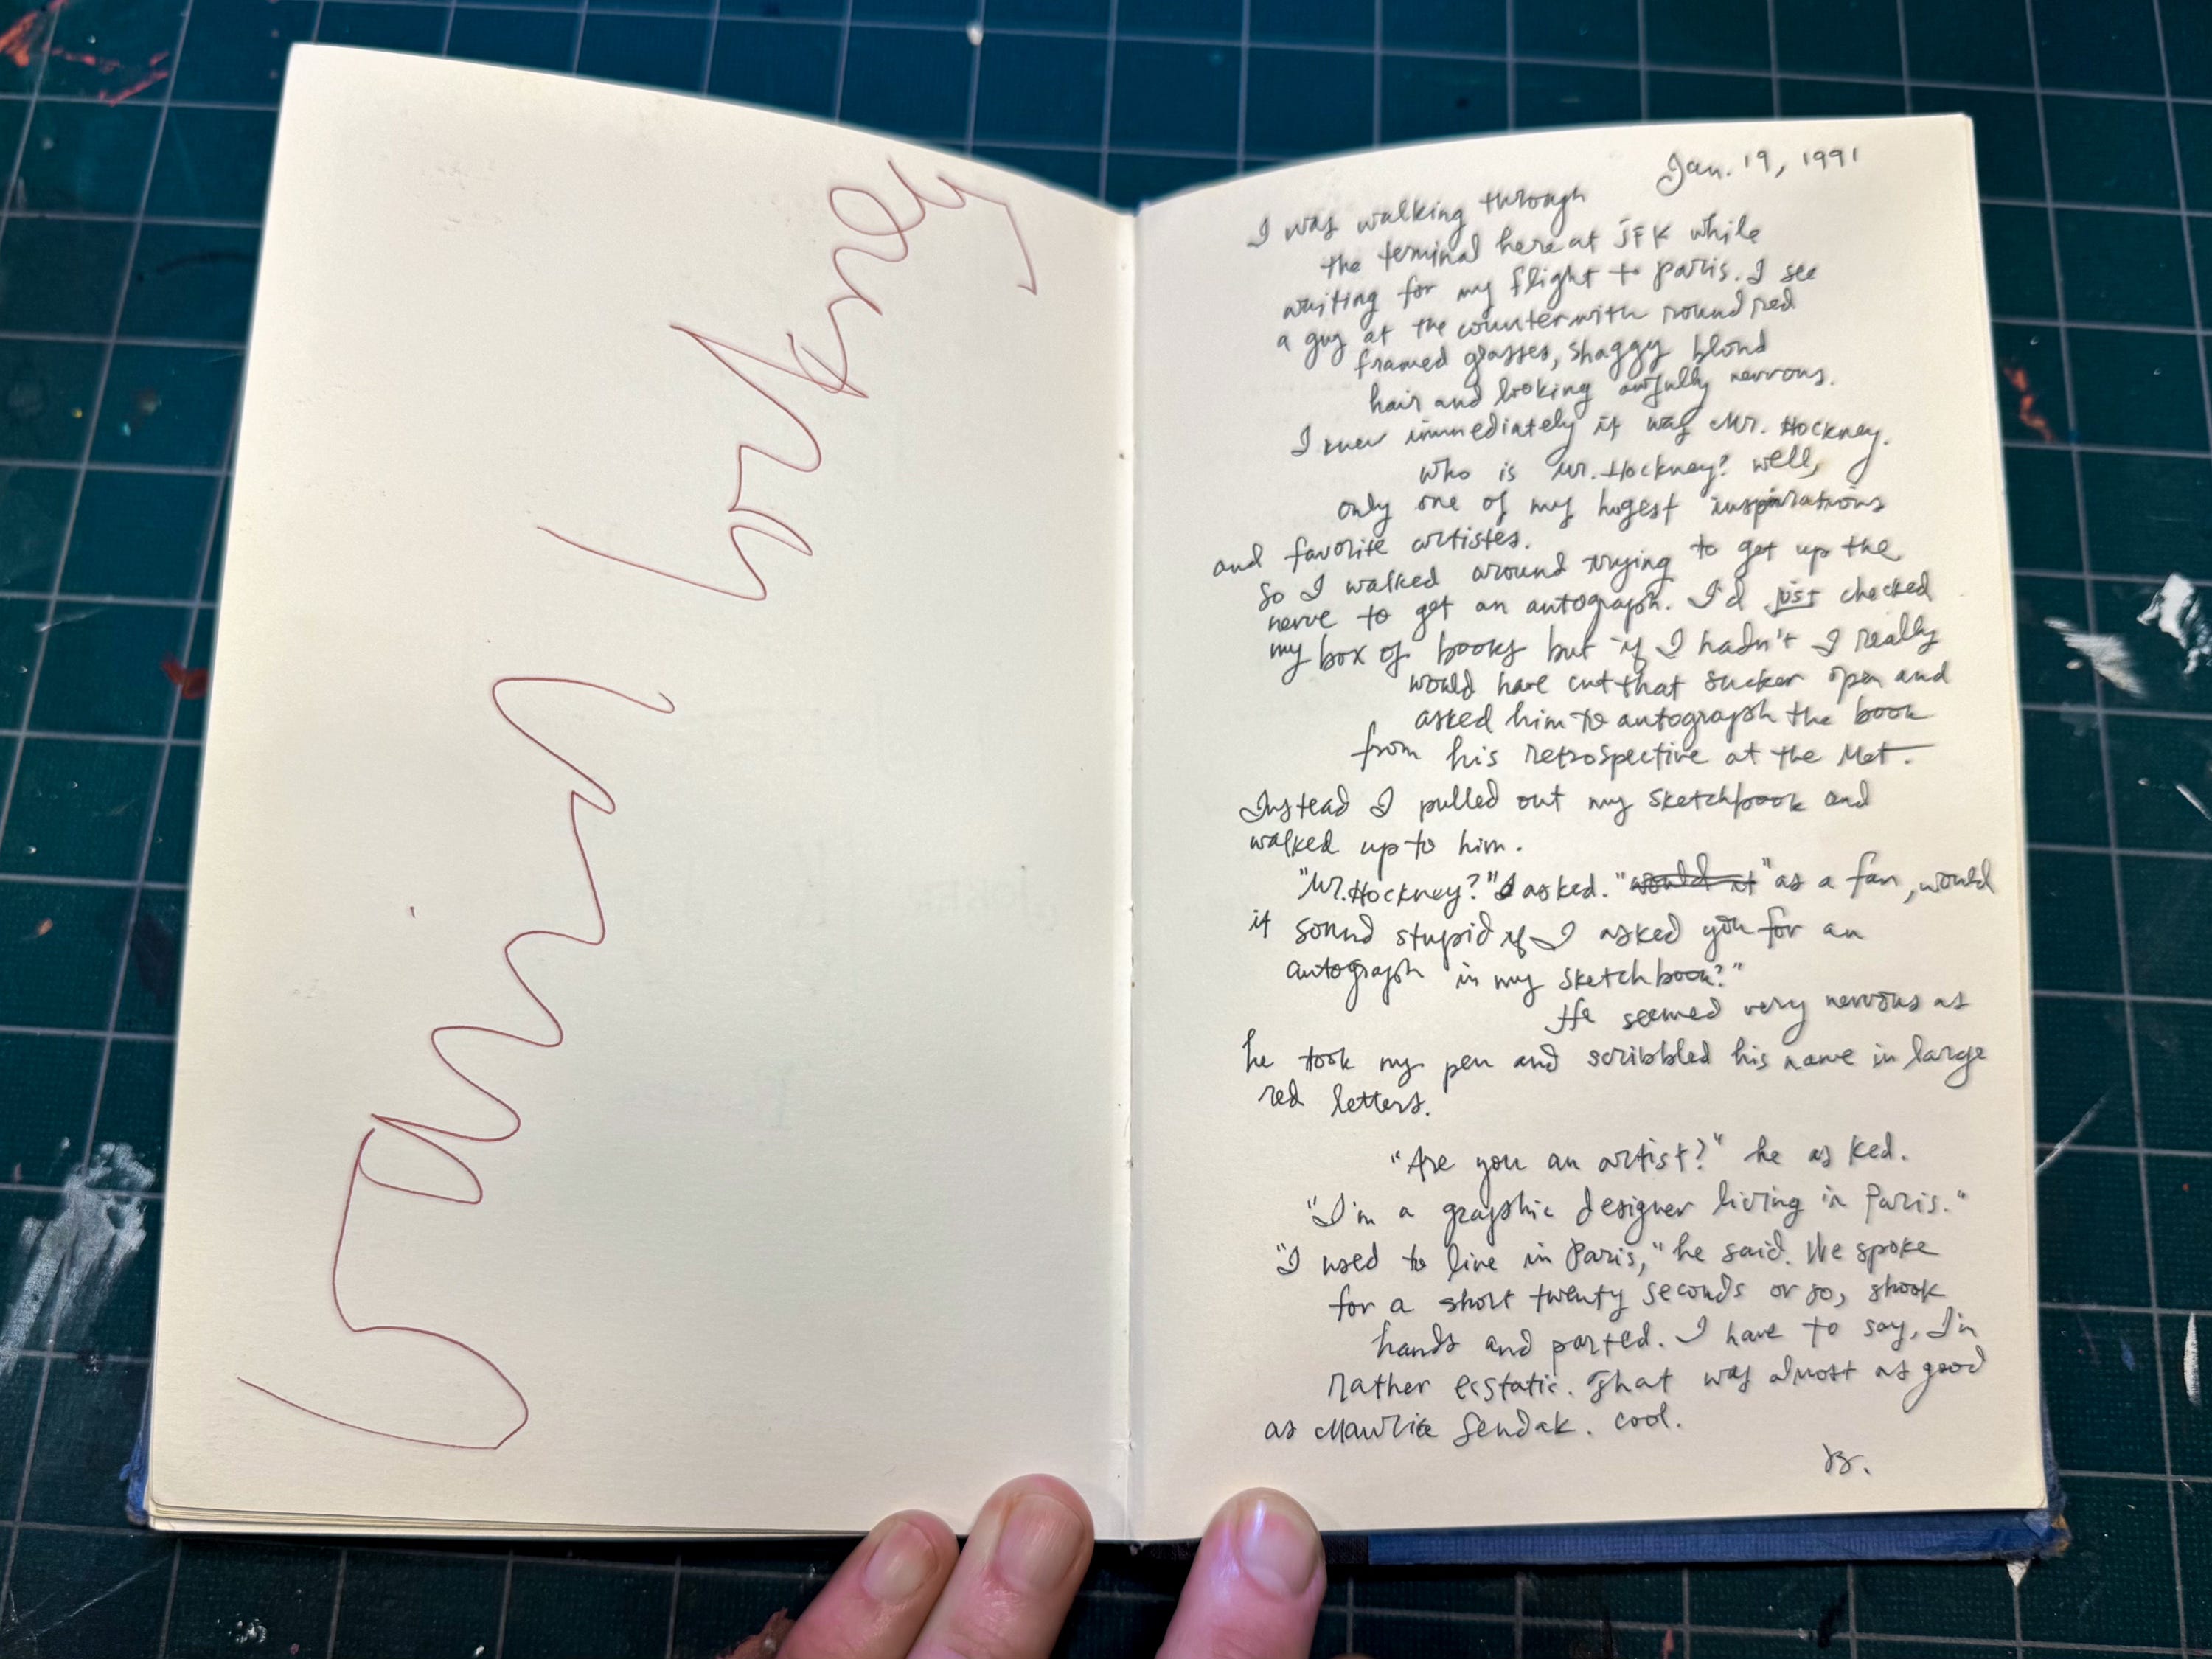 David Hockney
Jan. 19, 1991
I was walking through
the terminal here at JFK while
waiting for my flight to Paris. I see
a guy at the counter with round red
framed glasses, shaggy blond
hair and looking awfully nervous.
I knew immediately it was Mr. Hockney.
Who is Mr. Hockney? Well,
only one of my hugest inspirations
and favorite artistes.
So I walked around trying to get up the
nerve to get an autograph. I'd just checked
my box of books but if I hadn't I really
would have cut that sucker open and
asked him to autograph the book
from his retrospective at the Met.
Instead I pulled out my sketchbook and
walked up to him.
"Mr. Hockney?" I asked. "would it "as a fan, would
it sound stupid if I asked you for an
autograph in my sketchbook?"
He seemed very nervous as
he took my pen and scribbled his name in large
red letters.
"Are you an artist?" he asked.
"I'm a graphic designer living in Paris."
"I used to live in Paris," he said. We spoke
for a short twenty seconds or so, shook
hands and parted. I have to say, I'm
rather ecstatic. That was almost as good
as Maurice Sendak. cool.